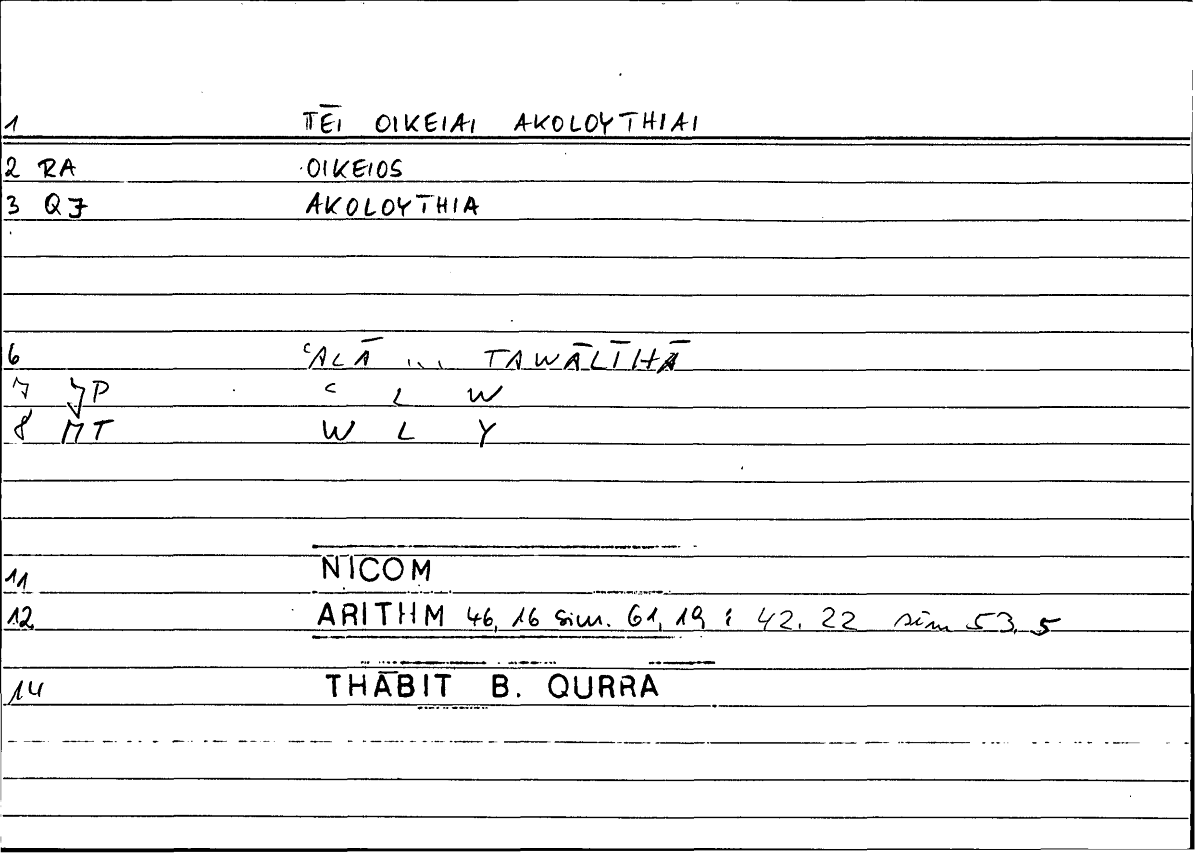 1 TĒI OIKEIAI AKOLOYTHIAI
2 RA OIKEIOS
3 QJ AKOLOYTHIA
6 ʿALĀ ... TAWĀLĪHĀ
7 JP ʿ L W
8 MT W L Y
11 NICOM
12 ARITHM 46, 16 sim. 61, 19 : 42. 22 sim 53, 5
14 THĀBIT B. QURRA